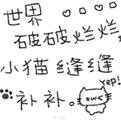 世界
破破烂烂
小猫缝缝
补补。
Yep!
owo